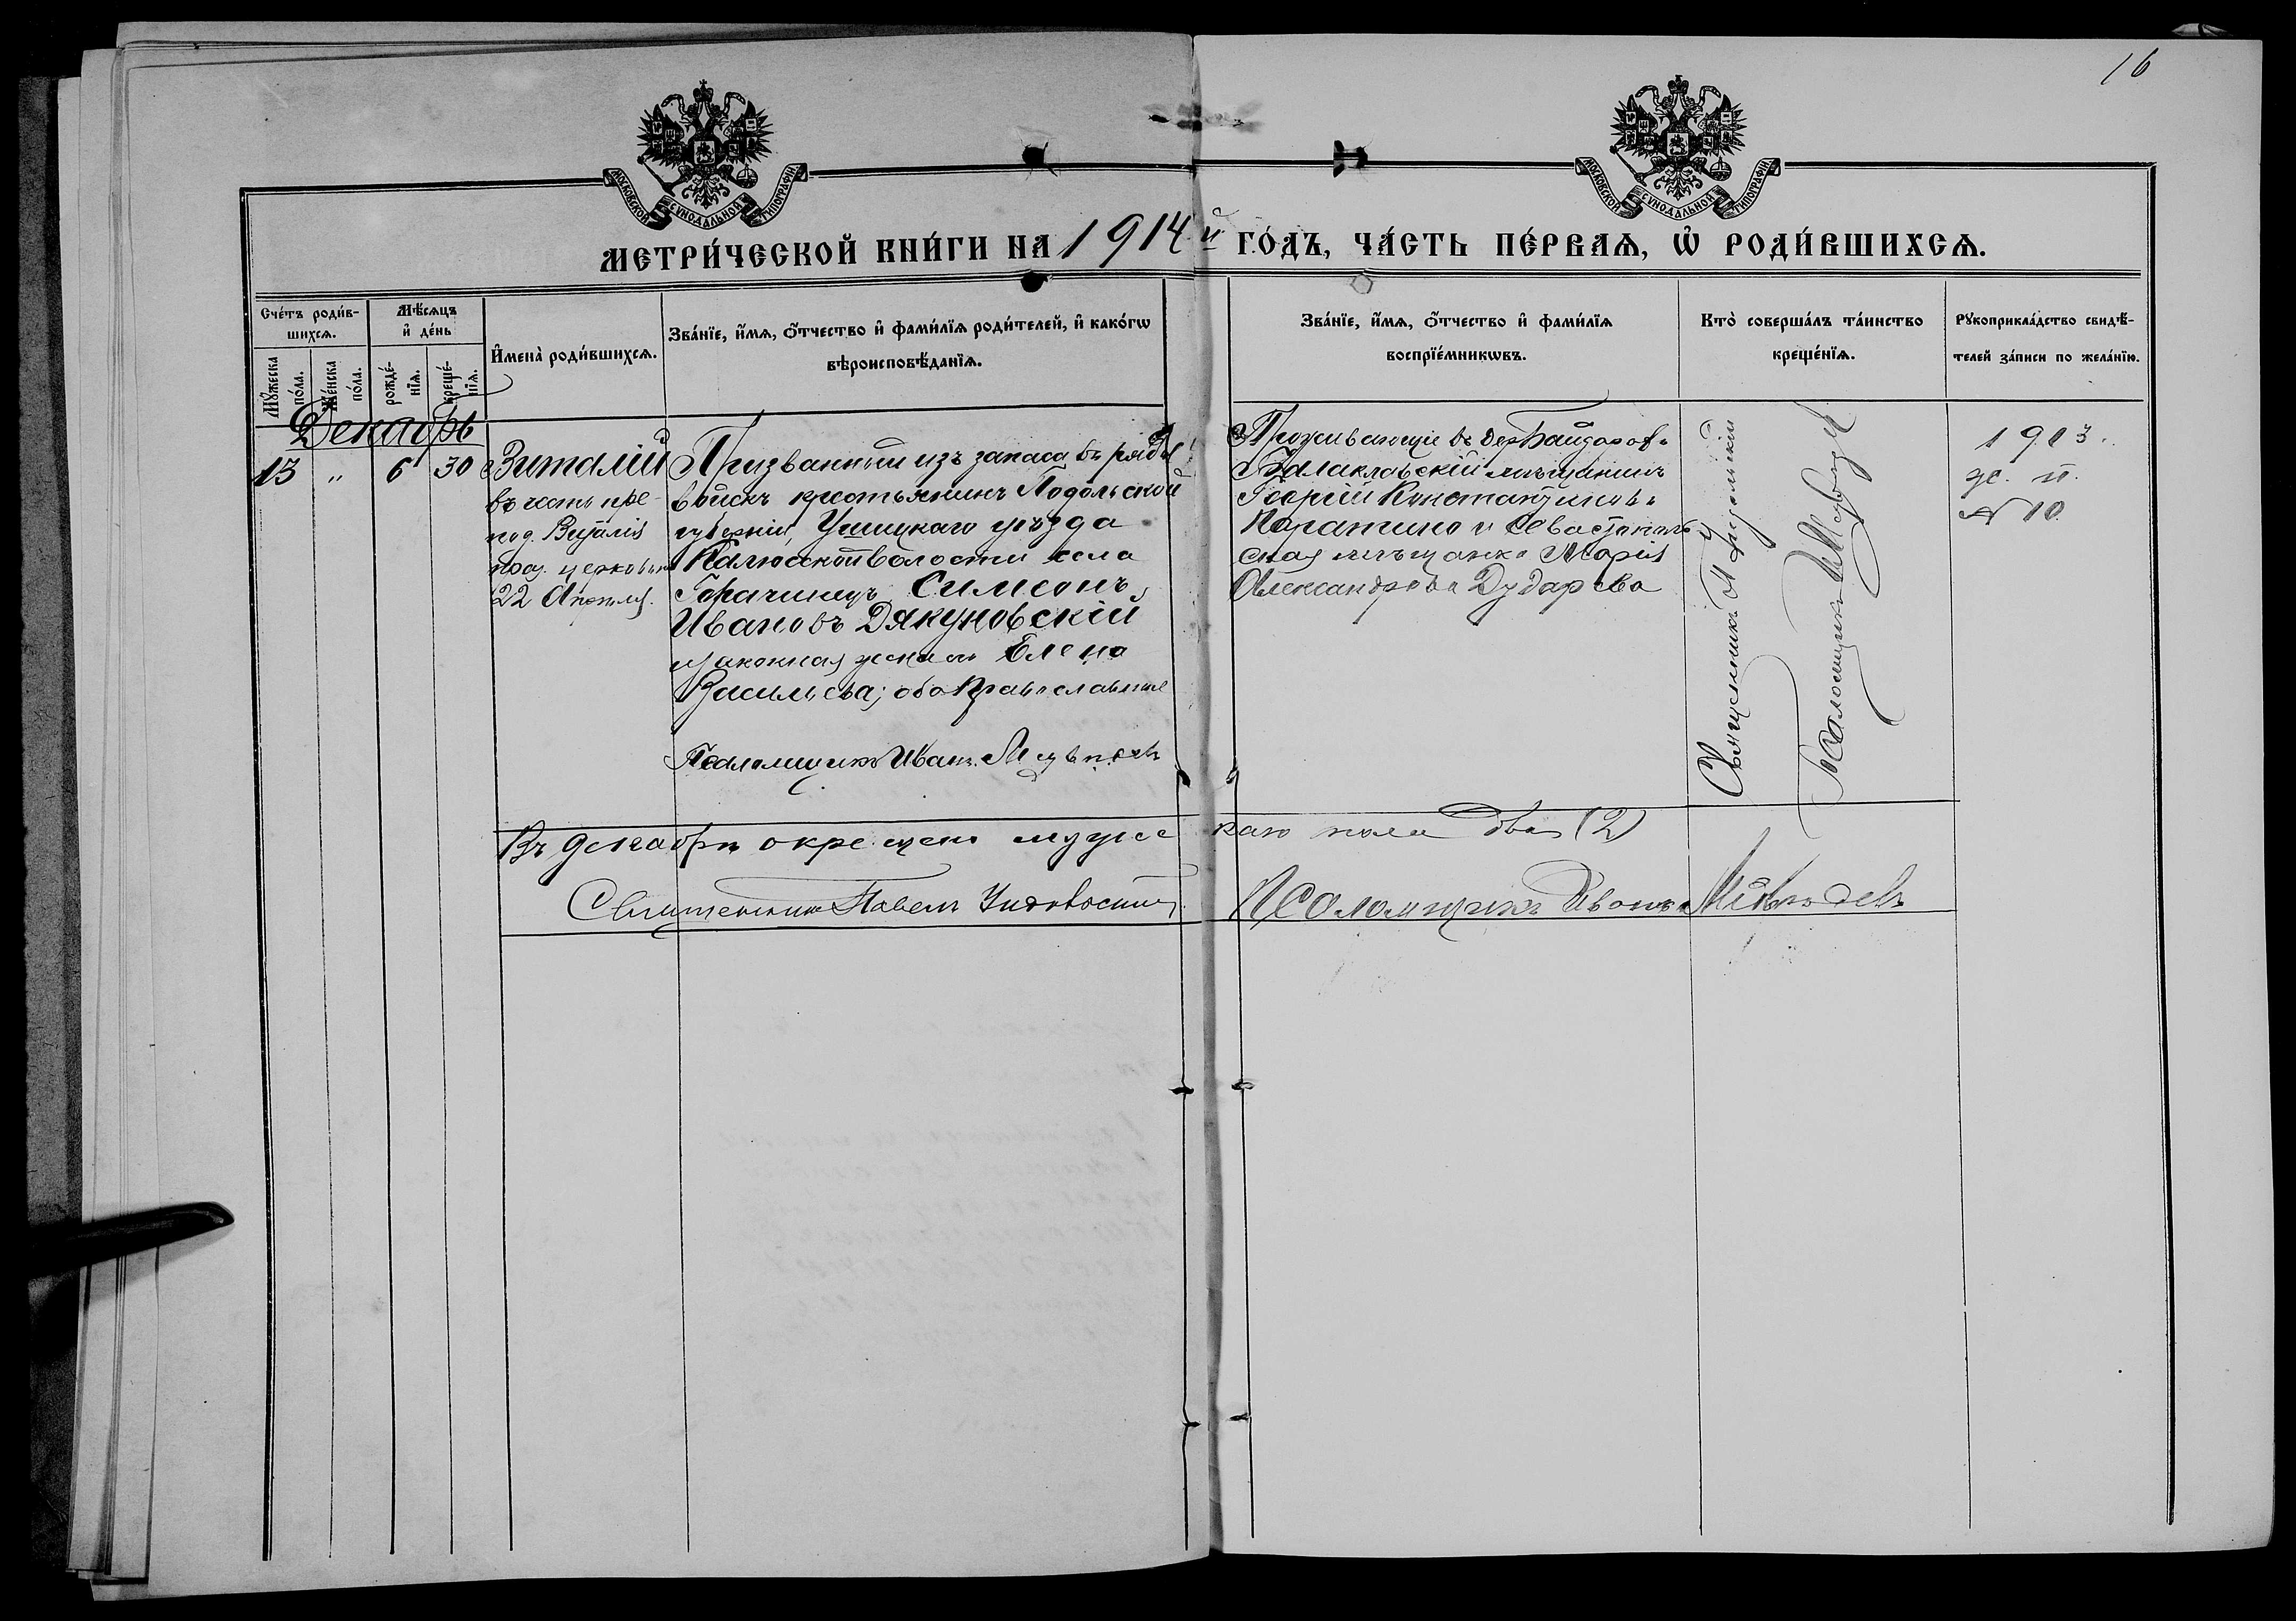 16
МОСКОВСКОЙ СѴНОДАЛЬНОЙ ТИПОГРАФІИ
МОСКОВСКОЙ СѴНОДАЛЬНОЙ ТИПОГРАФІИ
МЕТРИ́ЧЕСКОЙ КНИ́ГИ НА 1914 й ГО́ДЪ, ЧА́СТЬ ПЕ́РВАѦ, Ѡ҆ РОДИ́ВШИХСѦ.
Сче́тъ роди́в-
шихсѧ.
Мꙋ́жеска по́ла.
Же́нска по́ла.
Мѣ́сѧцъ
и҆ де́нь
рожде́-
нїѧ.
креще́-
нїѧ.
И҆мена̀ роди́вшихсѧ.
Зва́нїе, и҆́мѧ, ѻ҆́тчество и҆ фами́лїѧ роди́телей, и҆ како́гѡ
вѣроисповѣ́данїѧ.
Зва́нїе, и҆́мѧ, ѻ҆́тчество и҆ фами́лїѧ
воспрїе́мникѡвъ.
Кто̀ соверша́лъ та́инство
креще́нїѧ.
Рꙋкоприкла́дство свидѣ́-
телей за́писи по жела́нїю.
Декабрь
13 " 6 30
Виталій
въ честь пре-
под. Виталія
праз. церковью
22 Апреля.
Призванный изъ запаса въ ряды
войскъ крестьянинъ Подольской
губерніи, Ушицкаго уѣзда
Калюсской волости села
Симеонъ
Ивановъ Дякуновскій
и законная жена его Елена
Васильева; оба православные
Псаломщикъ Иванъ
Проживающіе въ дер. Байдарахъ
Балаклавскій мѣщанинъ
Георгій Константиновъ
Каратино и Севастополь-
ская мѣщанка Марія
Александрова Дударева
Священникъ П.
Псаломщикъ И.
1913.
ж. п.
№ 10
Въ декабрѣ окрещено мужескаго пола два (2)
Священникъ Павелъ
Псаломщикъ Иванъ